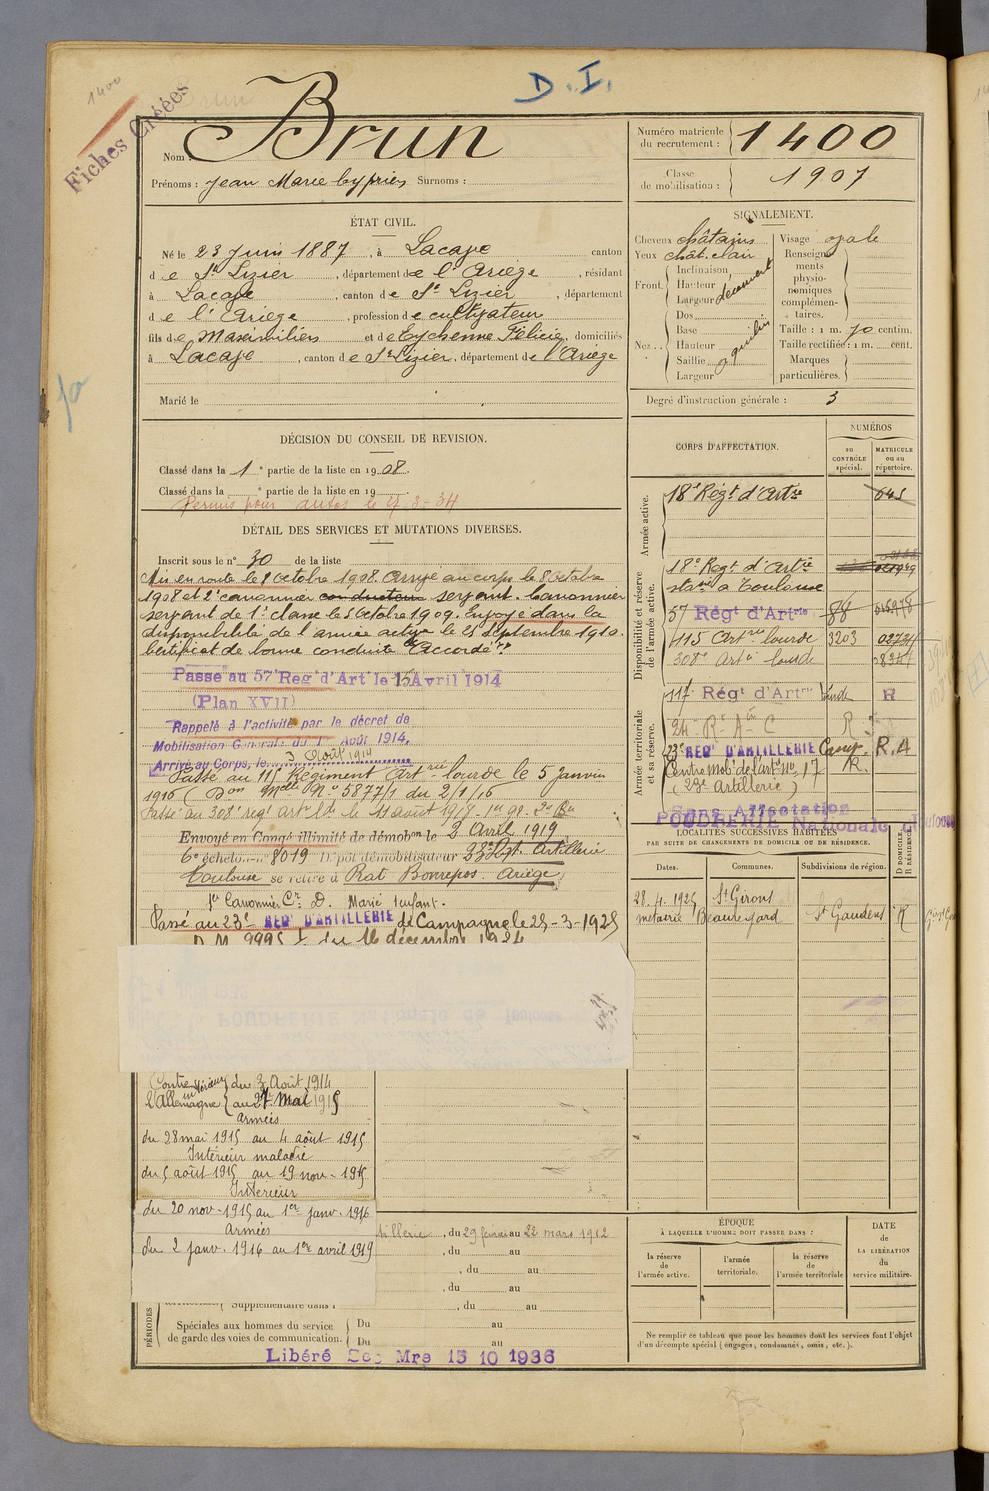 1400
Fiches Créées
D.I.
Nom : Brun
Prénoms : Jean Marie Cyprien Surnoms :
Numéro matricule du recrutement : 1400
Classe de mobilisation : 1907
ÉTAT CIVIL.
Né le 23 Juin 1887, à Lacave canton
de St Lizier, département de l'Ariège, résidant
à Lacave, canton de St Lizier, département
de l'Ariège, profession de cultivateur
fils de Maximilien et de Eychenne Félicie, domiciliés
à Lacave, canton de St Lizier, département de l'Ariège
Marié le
SIGNALEMENT.
Cheveux châtains
Yeux chât. clair
Front. Inclinaison,
Hauteur
Largeur découvert
Nez.. Dos
Base
Hauteur
Saillie
Largeur
Visage ovale
Renseignements physionomiques complémentaires.
Taille : 1 m. 70 centim.
Taille rectifiée : 1 m. cent.
Marques particulières.
Degré d'instruction générale : 3
DÉCISION DU CONSEIL DE REVISION.
Classé dans la 1e partie de la liste en 1908.
Classé dans la e partie de la liste en 19
Permis pour autos le 3-34
DÉTAIL DES SERVICES ET MUTATIONS DIVERSES.
Inscrit sous le n° 30 de la liste
Mis en route le 8 Octobre 1908. Arrivé au corps le 8 Octobre
1908 et 2e canonnier conducteur servant. Canonnier
servant de 1e classe le 5 Octobre 1909. Envoyé dans la
disponibilité de l'armée active le 25 Septembre 1910.
Certificat de bonne conduite "Accordé"
Passé au 57e Reg t d'Art ie le 15 Avril 1914
(Plan XVII)
Rappelé à l'activité par le décret de
Mobilisation Générale du 1er Août 1914.
Arrivé au Corps, le 3 Août 1914
Passé au 115 Régiment Artrie lourde le 5 Janvier
1916 (Don Melle No 5877/1 du 2/1/16
Passé au 308e regt artie lde le 11 août 1918
Envoyé en Congé illimité de démobon le 2 Avril 1919
6e échelon n° 8019 Dépôt démobilisateur 23e Rgt. Artillerie
Toulouse se retire à Rat Bonrepos. Ariège
1er Canonnier Cr D. Marié 1 enfant.
Passé au 23e REGt D'ARTILLERIE de Campagne le 25-3-1925
D.M. 9995 du 16 décembre 1924
POUDRERIE Nationale de Toulouse
Contre l'Allemagne
Intérieur du 3 Août 1914
au 27 Mai 1915
Armées
du 28 mai 1915 au 4 août 1915
Intérieur maladie
du 5 août 1915 au 19 nov. 1915
Intérieur
du 20 nov. 1915 au 1er janv. 1916
Armées
du 2 janv. 1916 au 1er avril 1919
tillerie, du 29 février au 22 mars 1912
, du au
, du au
Supplémentaire dans , du au
PÉRIODES
Spéciales aux hommes du service de garde des voies de communication.
Du au
Du au
Libéré Sce Mre 15 10 1936
CORPS D'AFFECTATION.
NUMÉROS
au CONTRÔLE spécial.
MATRICULE ou au répertoire.
Armée active.
18e Régt d'Artie 645
Disponibilité et réserve de l'armée active.
18e Regt d'Artie
stné à Toulouse
57 Régt d'Artrie 88
115 Artrie lourde 3203
308e Artie lourde
Armée territoriale et sa réserve.
117e Régt d'Artrie lourde R
24 R A C R
23e REGt D'ARTILLERIE Camp. R.A
Centre Mobe de l'artie No 17 R.
(23e Artillerie)
Sans Affectation
POUDRERIE Nationale de Toulouse
LOCALITÉS SUCCESSIVES HABITÉES
PAR SUITE DE CHANGEMENTS DE DOMICILE OU DE RÉSIDENCE.
Dates.
Communes.
Subdivisions de région.
D DOMICILE R RÉSIDENCE
28.4.1925 St Girons
métairie Beauregard St Gaudens R
ÉPOQUE
À LAQUELLE L'HOMME DOIT PASSER DANS :
la réserve de l'armée active.
l'armée territoriale.
la réserve de l'armée territoriale
DATE de LA LIBÉRATION du service militaire.
Ne remplir ce tableau que pour les hommes dont les services font l'objet
d'un décompte spécial (engagés, condamnés, omis, etc.).